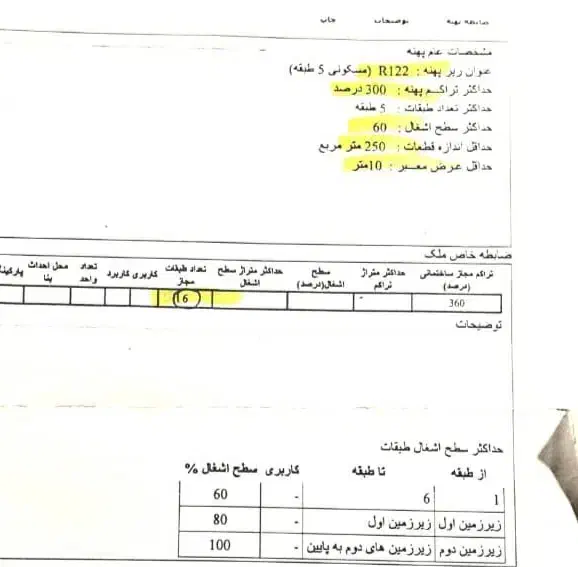 ضابطه پهنه توضیحات چاپ
مشخصات عام پهنه
عنوان زیر پهنه : R122 (مسکونی 5 طبقه)
حداکثر تراکم پهنه : 300 درصد
حداکثر تعداد طبقات : 5 طبقه
حداکثر سطح اشغال : 60
حداقل اندازه قطعات : 250 متر مربع
حداقل عرض معبر : 10متر
ضابطه خاص ملک
تراکم مجاز ساختمانی (درصد) حداکثر متراژ تراکم سطح اشغال(درصد) حداکثر متراژ سطح اشغال تعداد طبقات مجاز کاربری کاربرد تعداد واحد محل احداث بنا
360 - 6
توضیحات
حداکثر سطح اشغال طبقات
از طبقه تا طبقه کاربری سطح اشغال %
1 6 - 60
زیرزمین اول زیرزمین اول - 80
زیرزمین دوم زیرزمین های دوم به پایین - 100